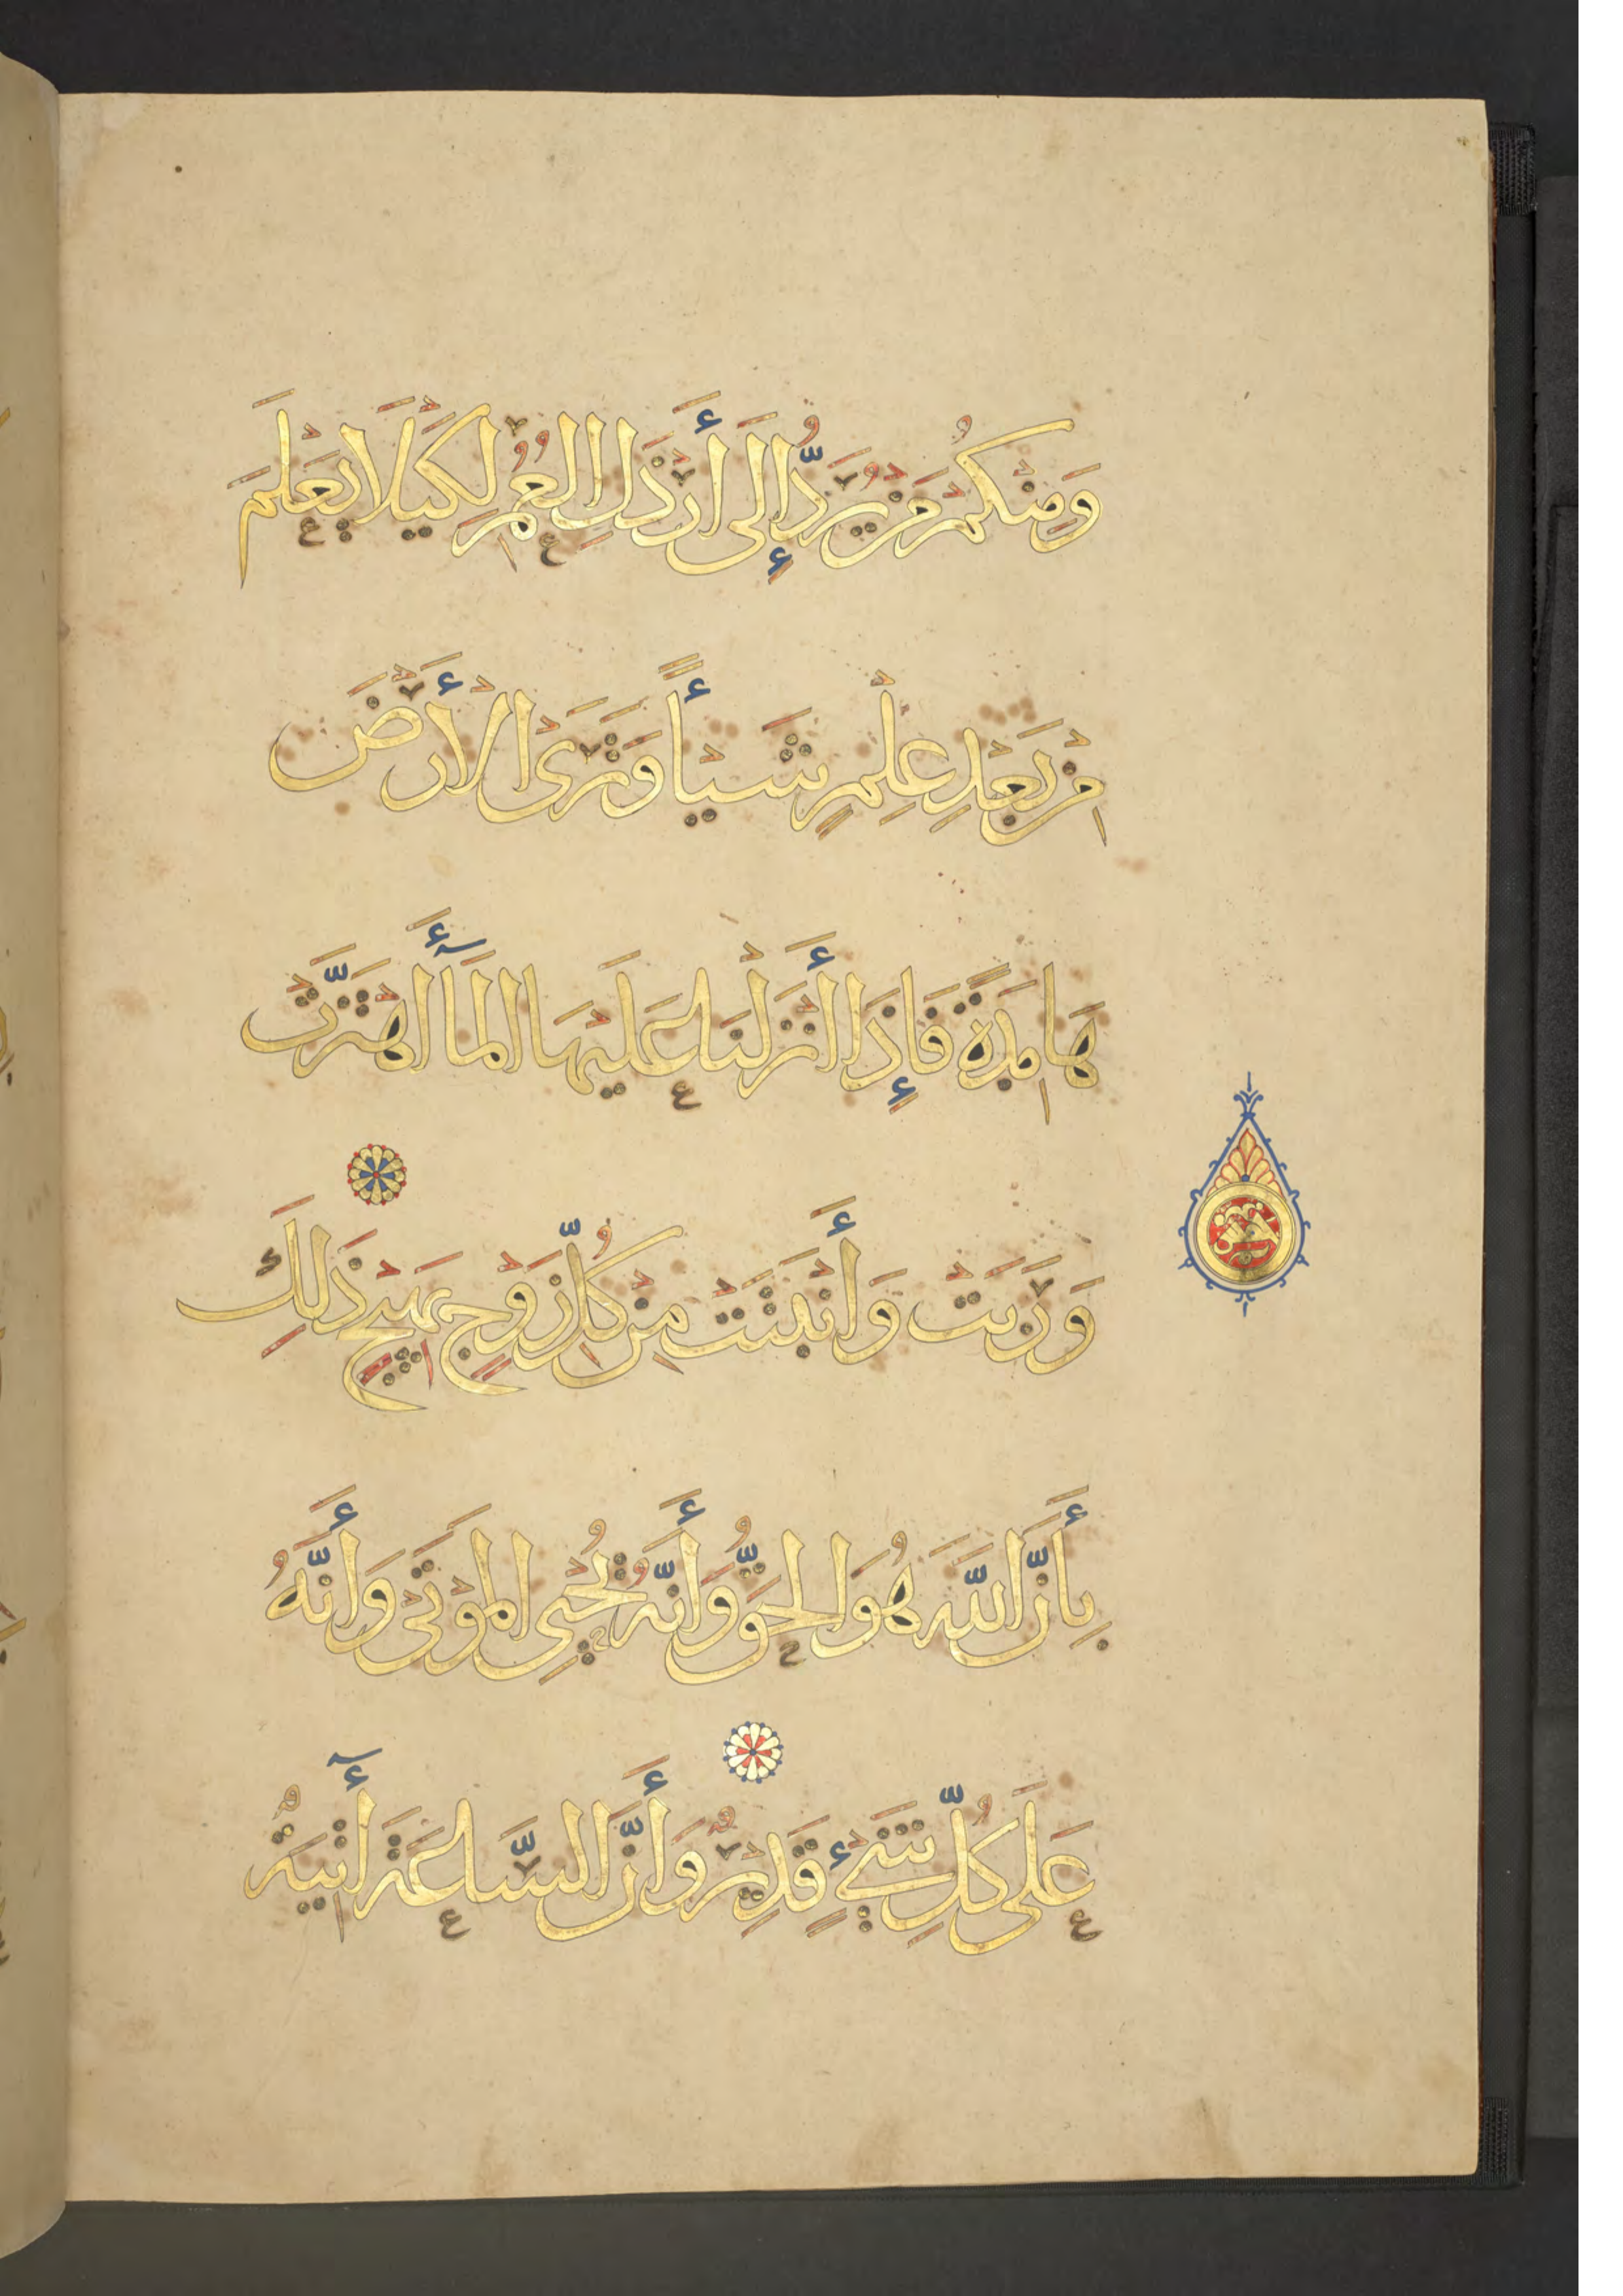 وَمِنْكُمْ مَنْ يُرَدُّ إِلَى أَرْذَلِ الْعُمُرِ لِكَيْلَا يَعْلَمَ
مِنْ بَعْدِ عِلْمٍ شَيْـأً وَتَرَى الْأَرْضَ
هَامِدَةً فَإِذَا أَنْزَلْنَا عَلَيْهَا الْمَآءَ اهْتَزَّتْ
وَرَبَتْ وَأَنْبَتَتْ مِنْ كُلِّ زَوْجٍ بَهِيْجٍ ذَلِكَ
بِأَنَّ اللَّهَ هُوَ الْحَقُّ وَأَنَّهُ يُحْيِ الْمَوْتَى وَأَنَّهُ
عَلَى كُلِّ شَيْءٍ قَدِيْرٌ وَأَنَّ السَّاعَةَ أٓتِيَةٌ